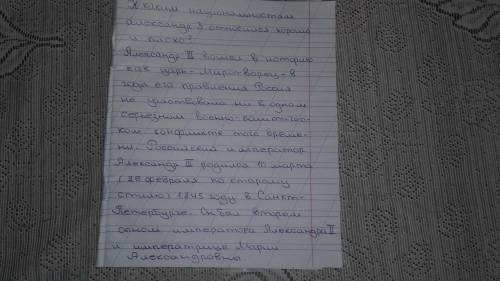 К каким национальностям
александр 3 относился хорошо
и плохо?
Александр III вошел в историю
как царь-Миротворец-в
года его правления Россия
не участвовала ни в одном
серьезном военно-политичес-
ком конфликте того време-
ни. Российский император
Александр III родился 10 марта
(26 февраля по старому
стилю) 1845 году в Санкт-
Петербурге. Он был вторым
сыном императора Александра II
и императрице Марии
Александровны.